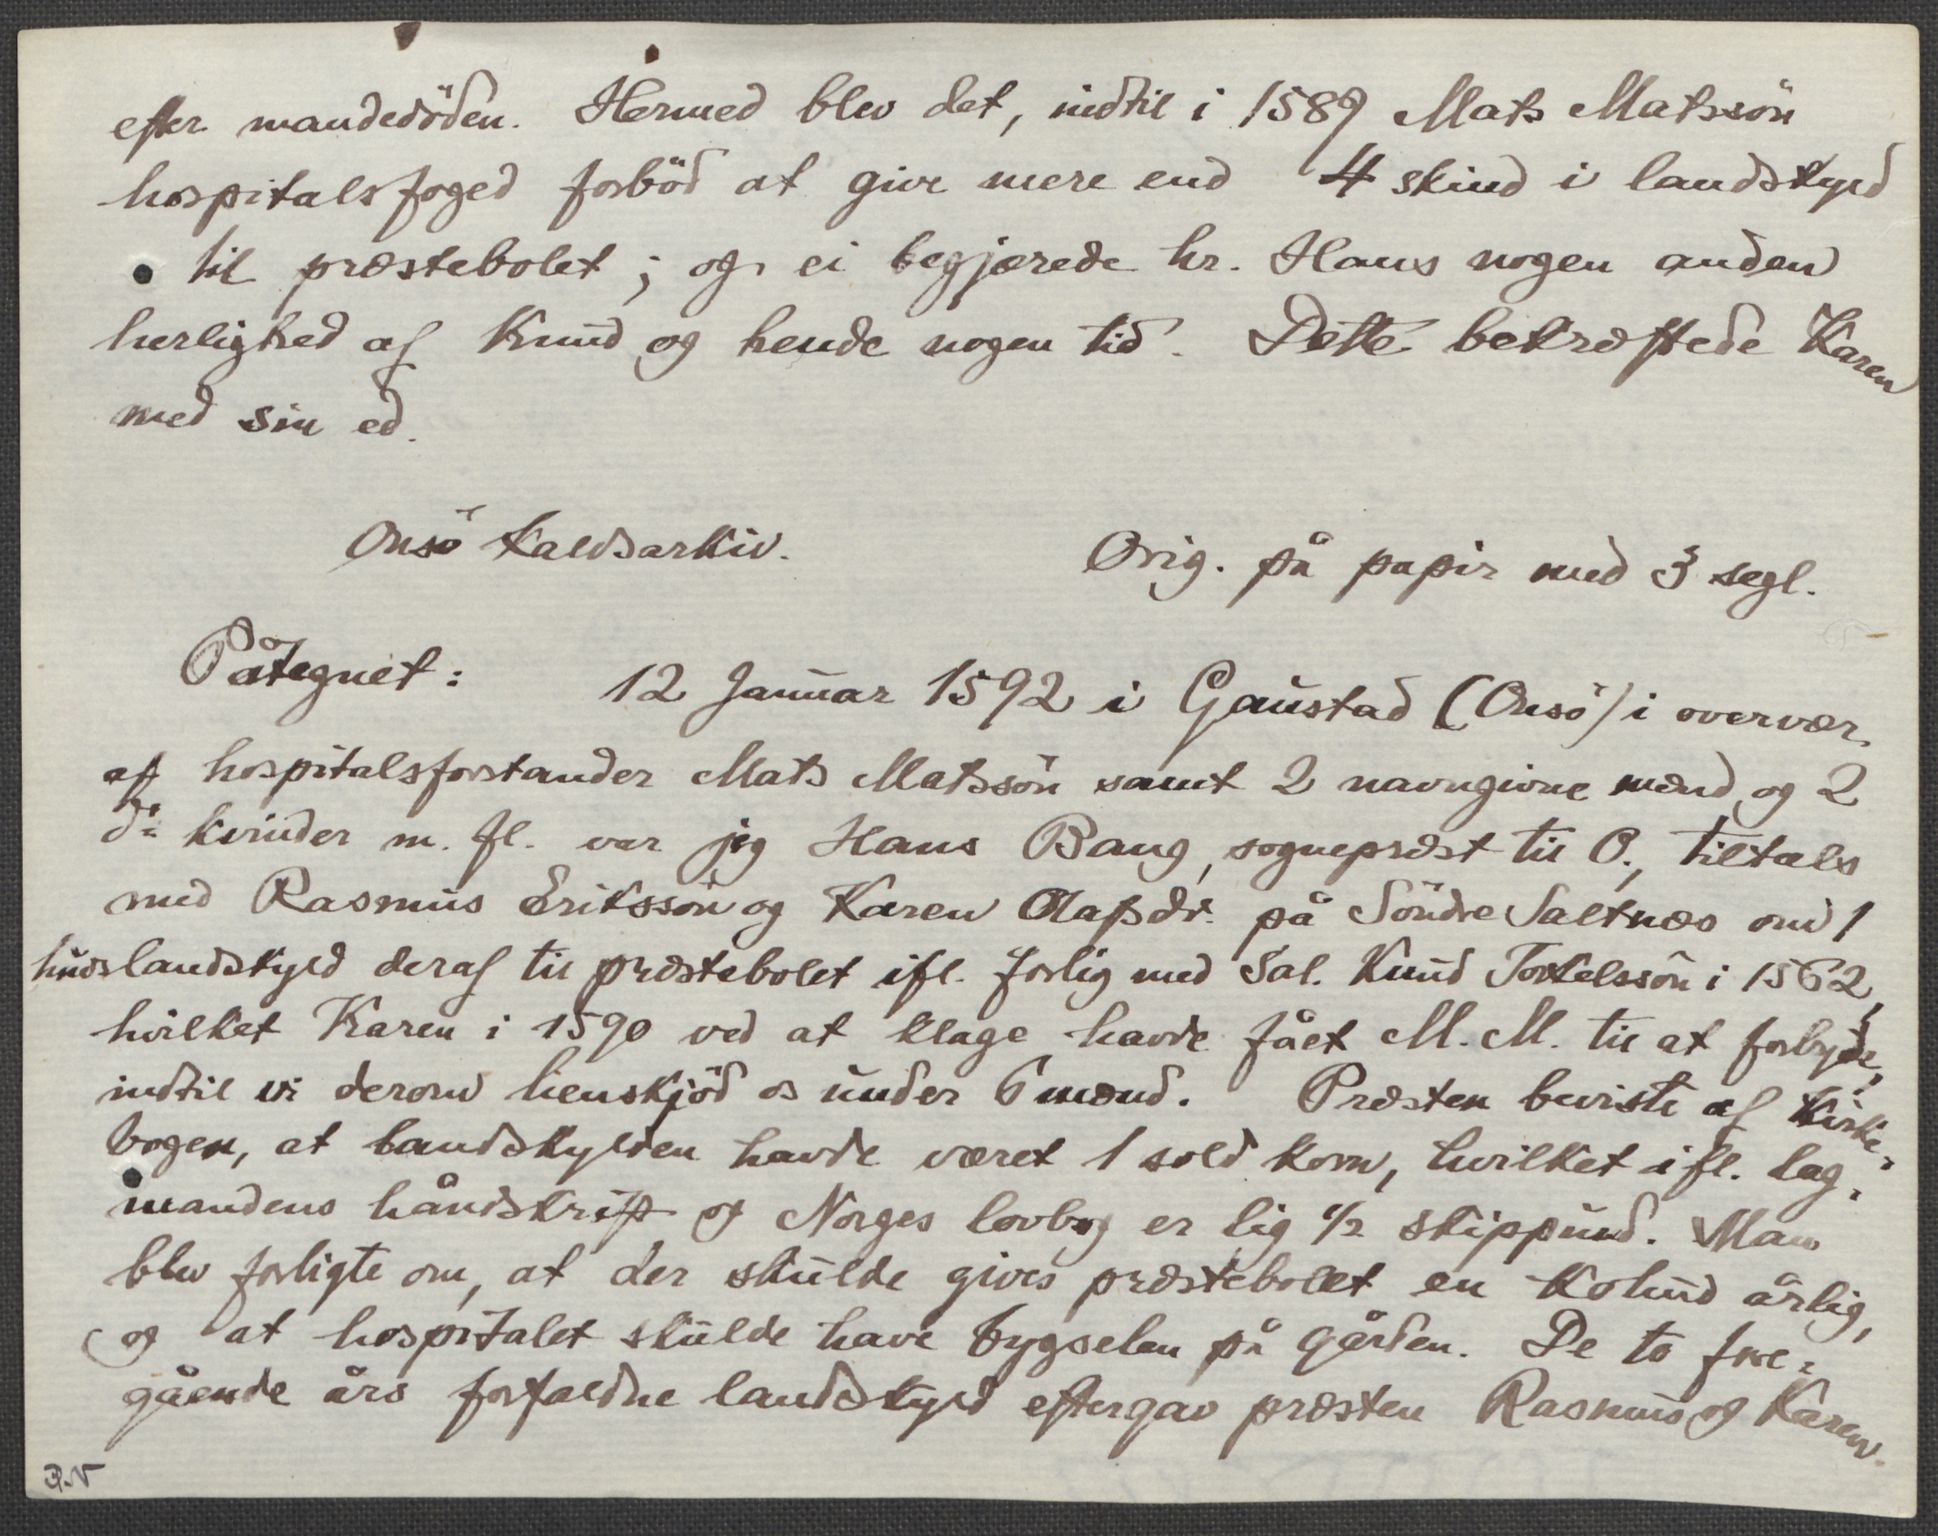 efter mandedöden. Hermed blev det, indtil i 1589 Mats Matssön
hospitalsfoged forböd at give mere end 4 skind i landskyld
til præstebolet; og ei begjærede hr. Hans nogen anden
herlighed af Knud og hende nogen tid. Dette bekræftede Karen
med sin ed.
Onsö kaldsarkiv. Orig. på papir med 3 segl.
Påtegnet: 12 Januar 1592 i Gaustad (Onsö) i overvær
af hospitalsforstander Mats Matssön samt 2 navngivne mænd og 2
do kvinder m. fl. var jeg Hans Bang, sognepræst til O., tiltals
med Rasmus Eriksson og Karen Olafsdr. på Söndre Saltnæs om 1
huds landskyld deraf til præstebolet ifl. forlig med Sal. Knud Torkelssön i 1562,
hvilket Karen i 1590 ved at klage havde fået M. M. til at forbyde,
indtil vi derom henskjöd os under 6 mænd. Præsten beviste af kirke-
bogen, at landskylden havde været 1 sold korn, hvilket ifl. lag-
mandens håndskrift og Norges lovbog er lig 1/2 skippund. Man
blev forligte om, at der skulde gives præstebolet en kohud årlig,
og at hospitalet skulde have bygselen på gården. De to fore-
gående års forfaldne landskyld eftergav præsten Rasmus og Karen.